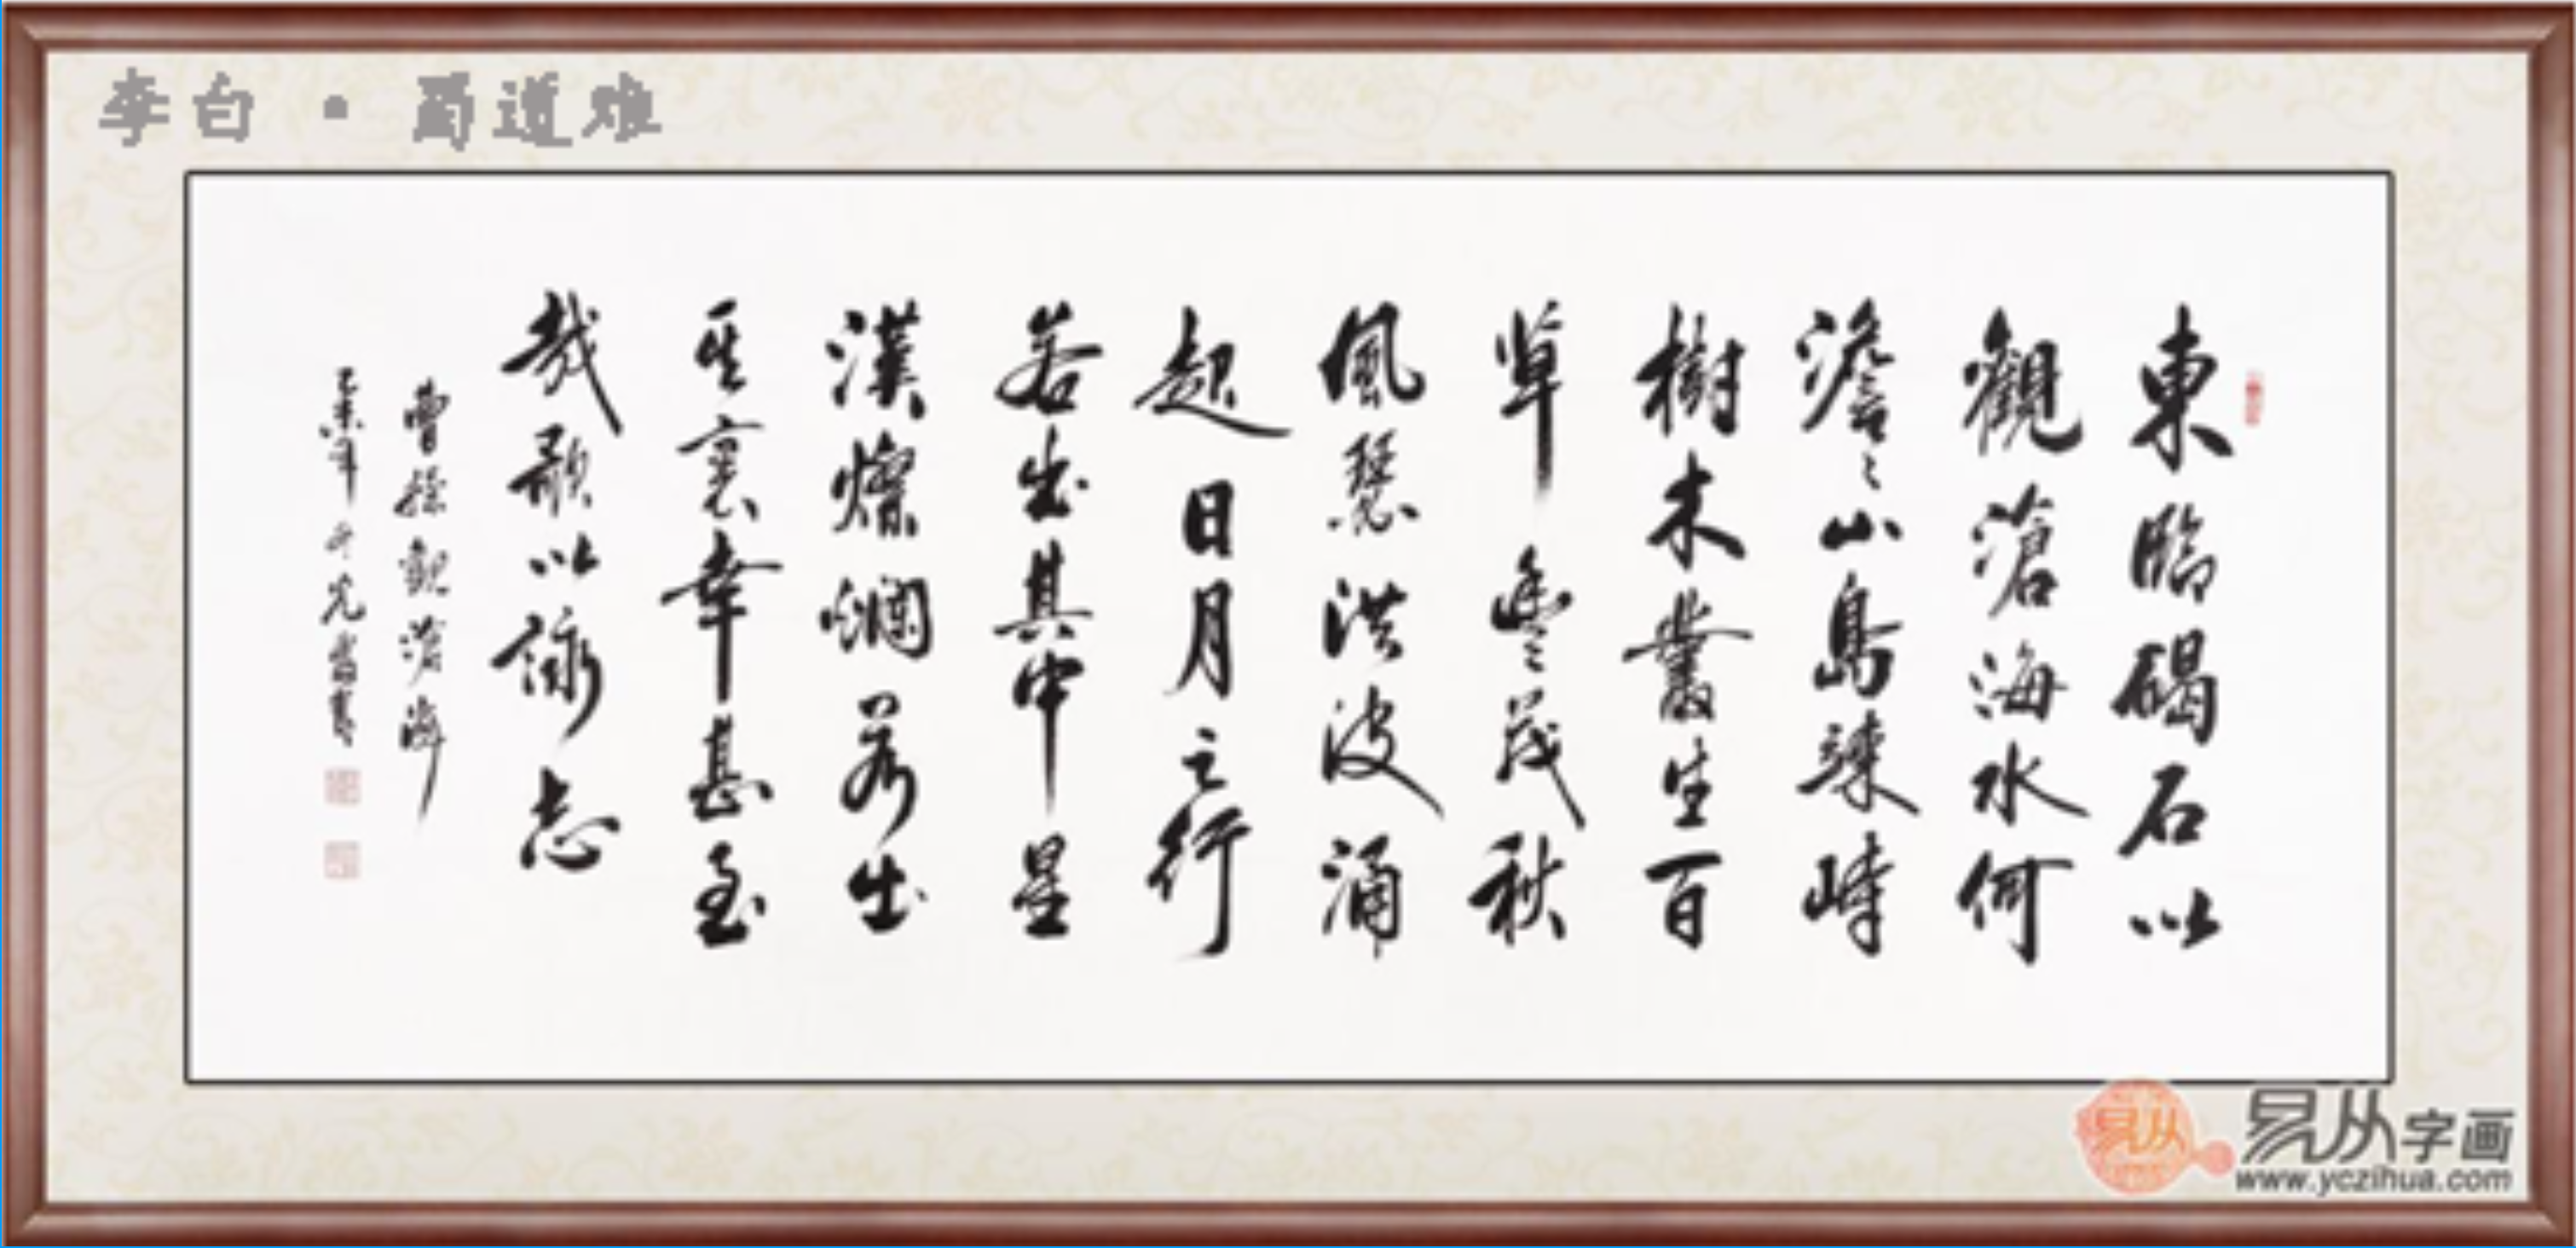 李白 · 蜀道难
東臨碣石以
觀滄海水何
澹〻山島竦峙
樹木叢生百
草豐〻茂秋
風瑟洪波涌
起日月之行
若出其中星
漢燦爛若出
其裏幸甚至
哉歌以詠志
曹操觀滄海
乙未年
書
易从
易从字画
www.yczihua.com